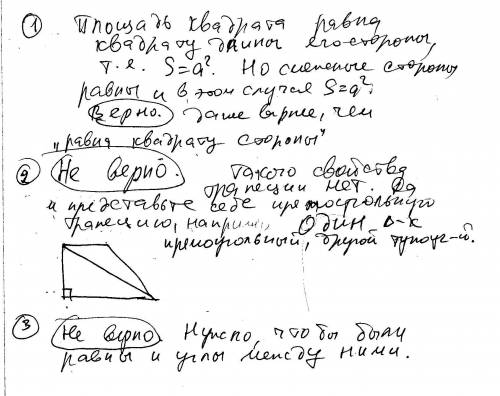 ① Площадь квадрата равна
квадрату длины его стороны,
т.е. S=a². Но смежные стороны
равны и в этом случае S=a².
Верно. Даже вернее, чем
"равна квадрату стороны"
② Не верно. Такого свойства
трапеции нет. Да
и представьте себе прямоугольную
трапецию, например, Один Δ-к
прямоугольный, другой тупоуг-й.
③ Не верно. Нужно, чтобы были
равны и углы между ними.